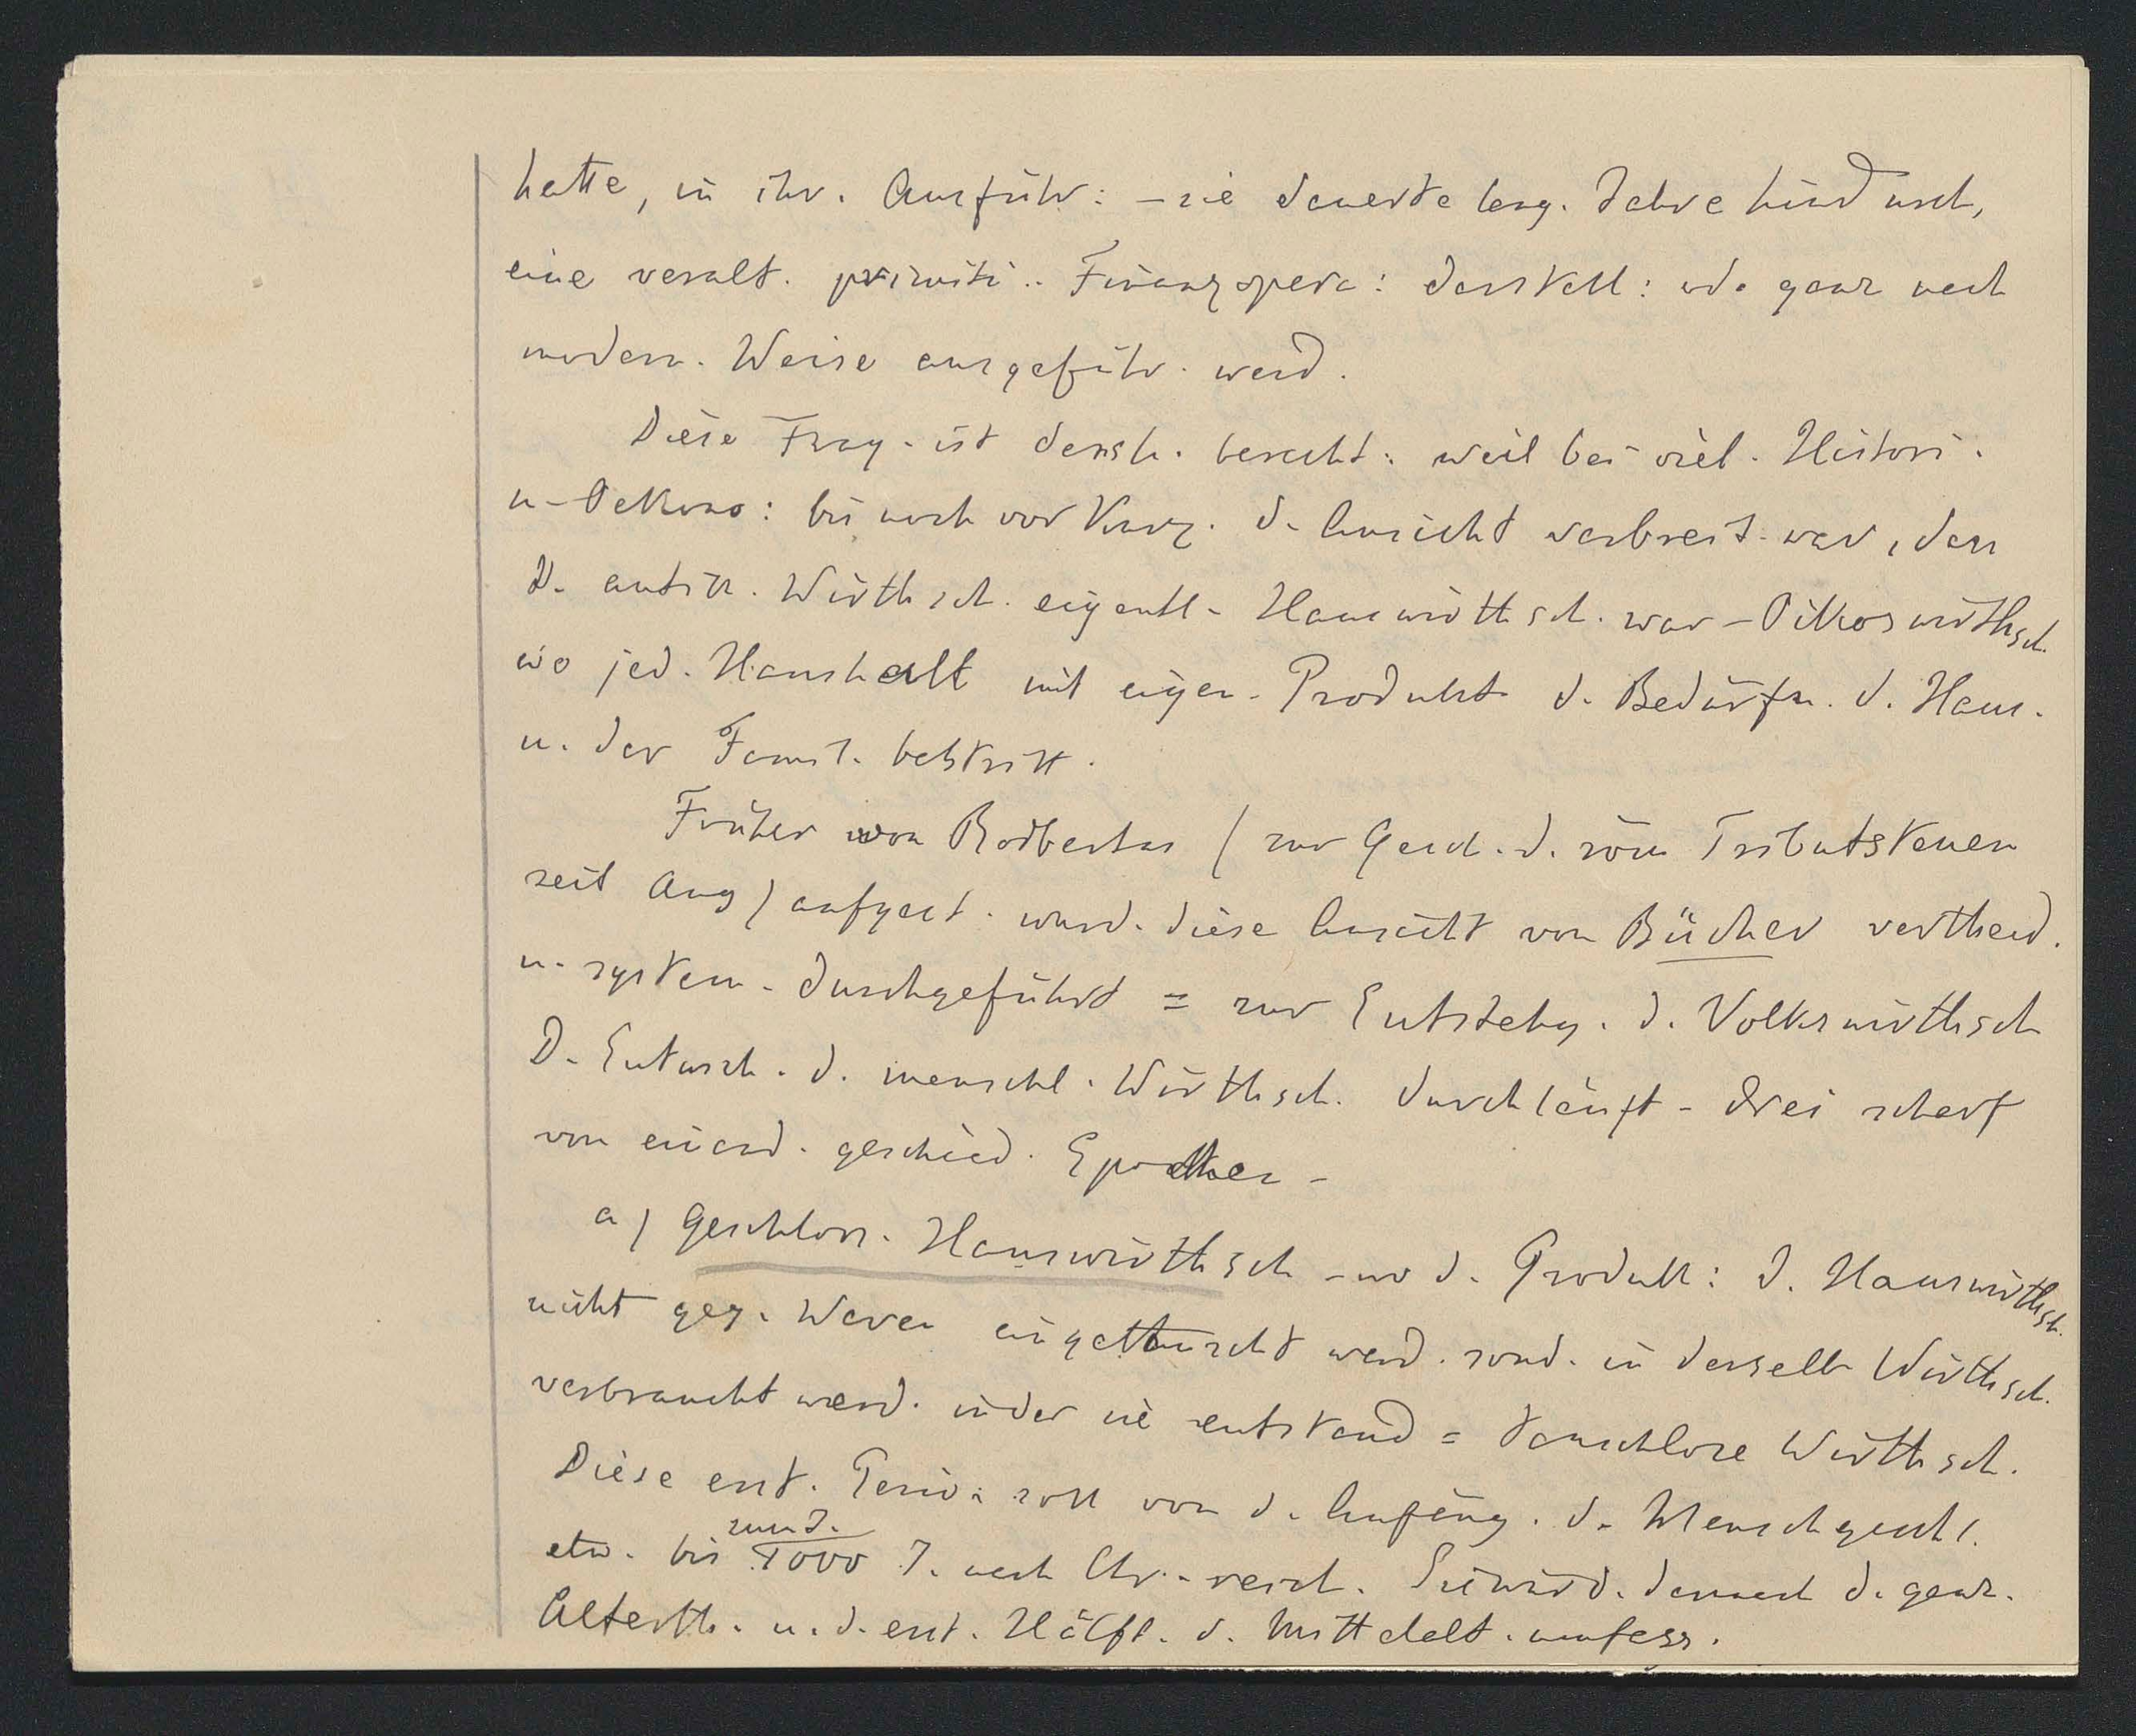 hatte, in ihr. Ausführ: – sie dauerte lang. Jahre hindurch,
eine veralt. primiti.. Finanzopera: darstell: od. ganz nach
modern. Weise ausgeführ. werd.
Diese Frag. ist desh. berecht: weil bei viel. Histori.
u. Oekono: bis noch vor Kurz. d. Ansicht verbreit. war, dass
d. antik. Wirthsch. eigentl. Hauswirthsch. war – Oikoswirthsch.
wo jed. Haushalt mit eigen. Produkt. d. Bedürfn. d. Haus.
u. der Famil. bestritt.
Früher von Rodbertus (zur Gesch. d. röm Tributsteuern
seit Aug) aufgest. wurd. diese Ansicht von Bücher vertheid.
u. system. durchgeführt = zur Entstehg. d. Volkswirthsch
D. Entwick. d. menschl. Wirthsch. durchläuft – drei scharf
von einand. geschied. Epochen –
a) Geschloss. Hauswirthsch – wo d. Produkt: d. Hauswirthsch.
nicht geg. Waren eingetauscht werd. sond. in derselb. Wirthsch.
verbraucht werd. in der sie entstand = tauschlose Wirthsch.
Diese erst. Perio: soll von d. Anfäng. d. Menschgeschl.
etw. bis zum J.
1000 J. nach Chr. – reich. Sie würd. darnach d. ganz.
Alterth. u. d. erst. Hälft. d. Mittelalt. umfass.